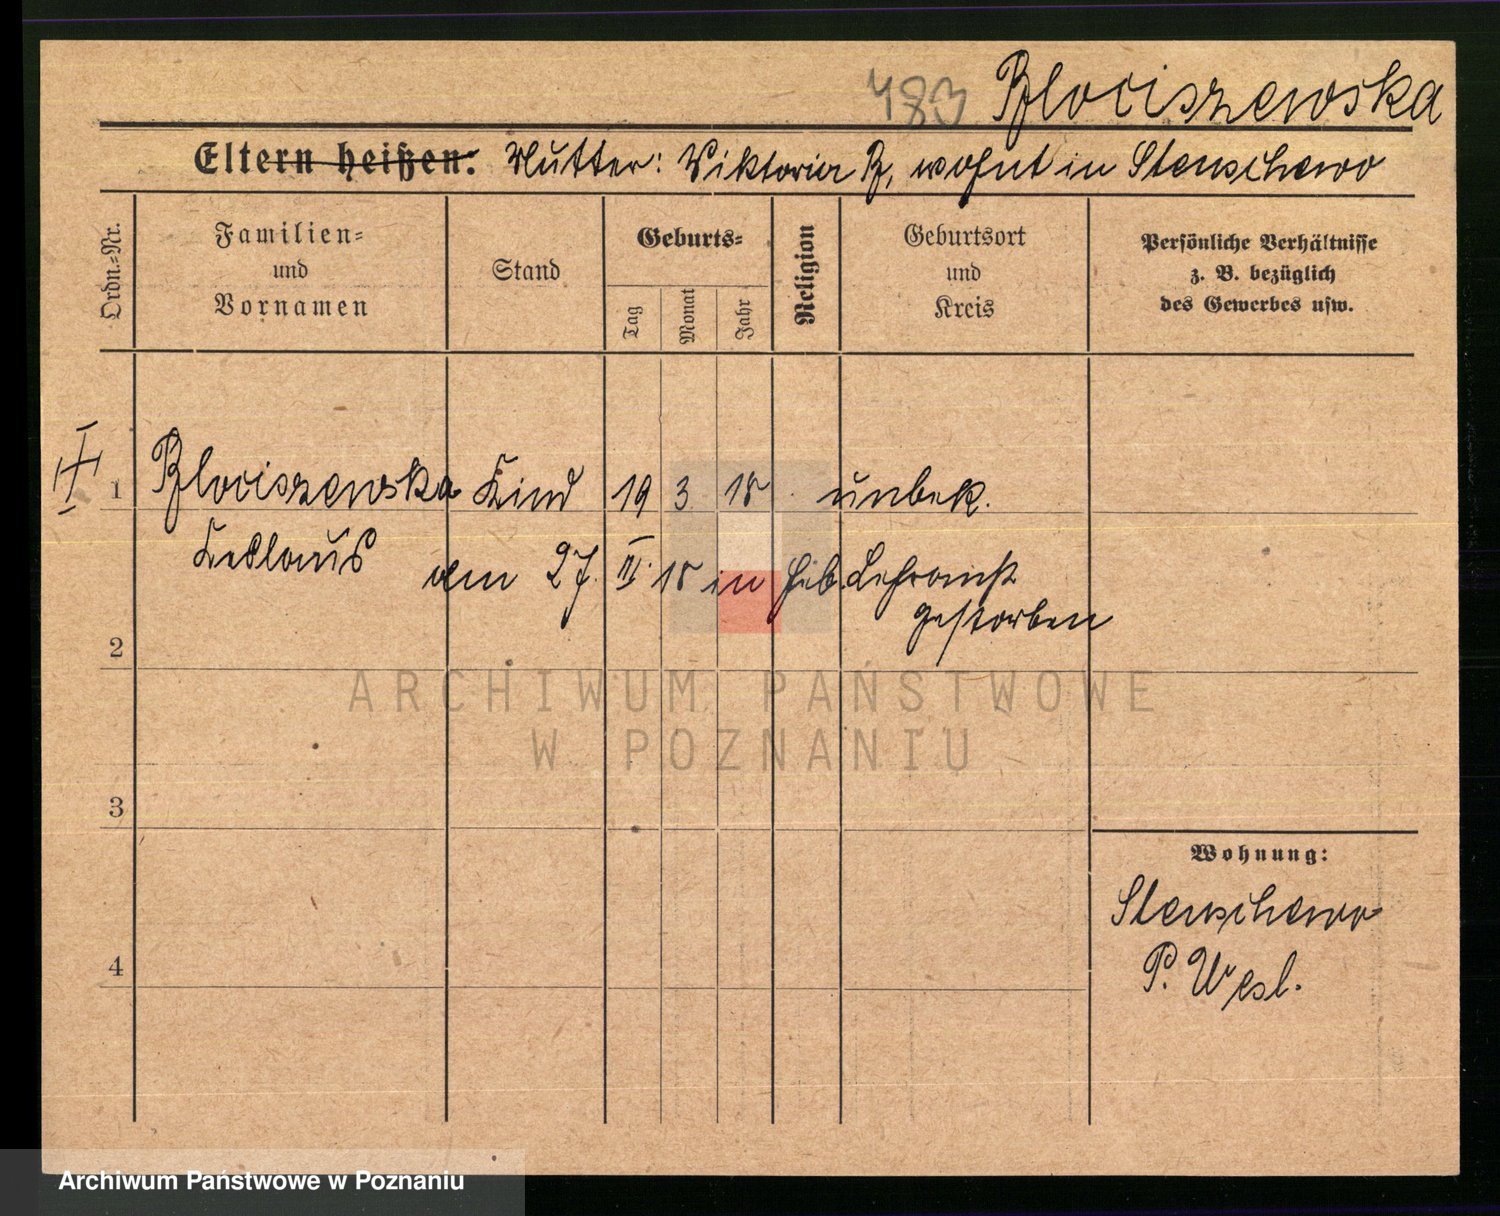 783 Błociszewska
Eltern heißen: Mutter: Viktoria B, wohnt in Stenschewo
Ordn.=Nr.
Familien=
und
Vornamen
Stand
Geburts=
Tag
Monat
Jahr
Religion
Geburtsort
und
Kreis
Persönliche Verhältnisse
z. B. bezüglich
des Gewerbes usw.
1 Blociszewska Kind 19 3 18 unbek.
Ceslaus am 27. III. 18 in Heb. Lehranst
gestorben
2
3
4
Wohnung:
Stenschewo
P. Wesl.
ARCHIWUM PAŃSTWOWE
W POZNANIU
Archiwum Państwowe w Poznaniu